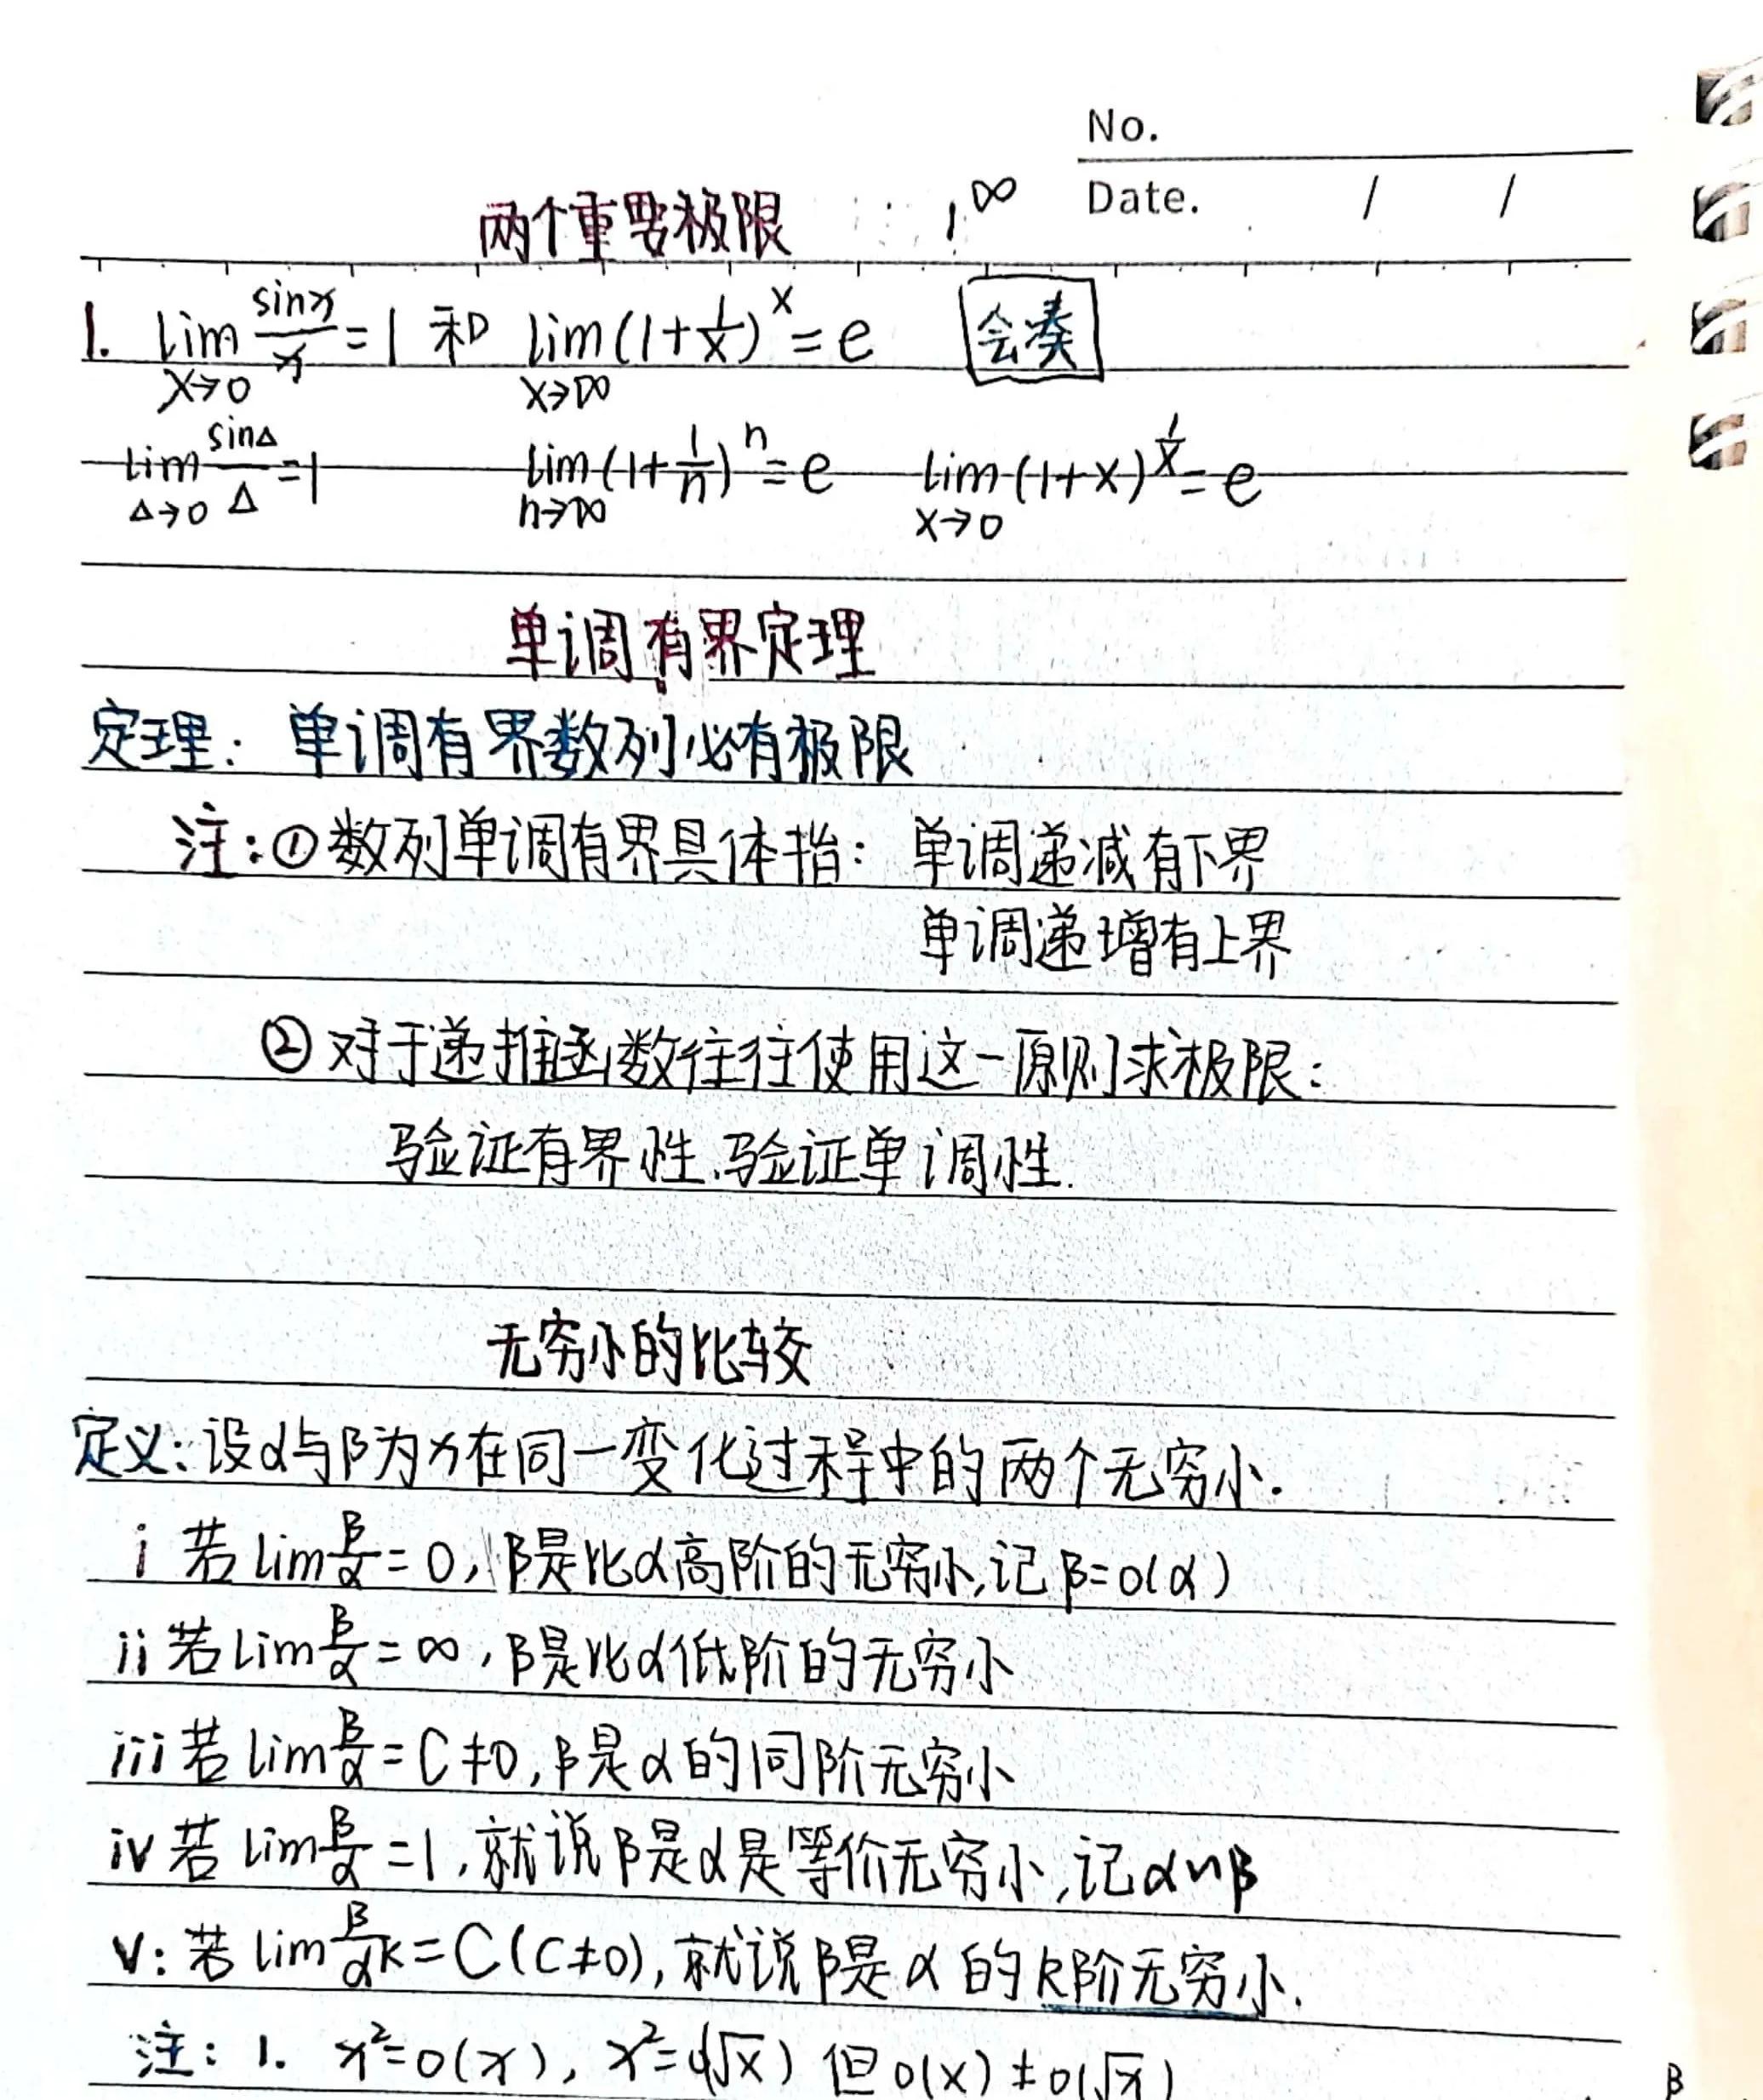 No.
两个重要极限 1^∞ Date. / /
1. lim_{x→0} sinx/x = 1 和 lim_{x→∞} (1+1/x)^x = e 会凑
lim_{Δ→0} sinΔ/Δ = 1 lim_{n→∞} (1+1/n)^n = e lim_{x→0} (1+x)^{1/x} = e
单调有界定理
定理: 单调有界数列必有极限
注:①数列单调有界具体指: 单调递减有下界
单调递增有上界
②对于递推函数往往使用这一原则求极限:
验证有界性、验证单调性.
无穷小的比较
定义:设α与β为x在同一变化过程中的两个无穷小.
i 若 lim β/α = 0, β是比α高阶的无穷小,记β=o(α)
ii 若 lim β/α = ∞, β是比α低阶的无穷小
iii 若 lim β/α = C≠0, β是α的同阶无穷小
iv 若 lim β/α = 1, 就说β是α是等价无穷小,记α∽β
V: 若 lim β/α^k = C(C≠0), 就说β是α的k阶无穷小.
注: 1. x²=o(x), x²=o(√x) 但 o(x)≠o(√x)
β